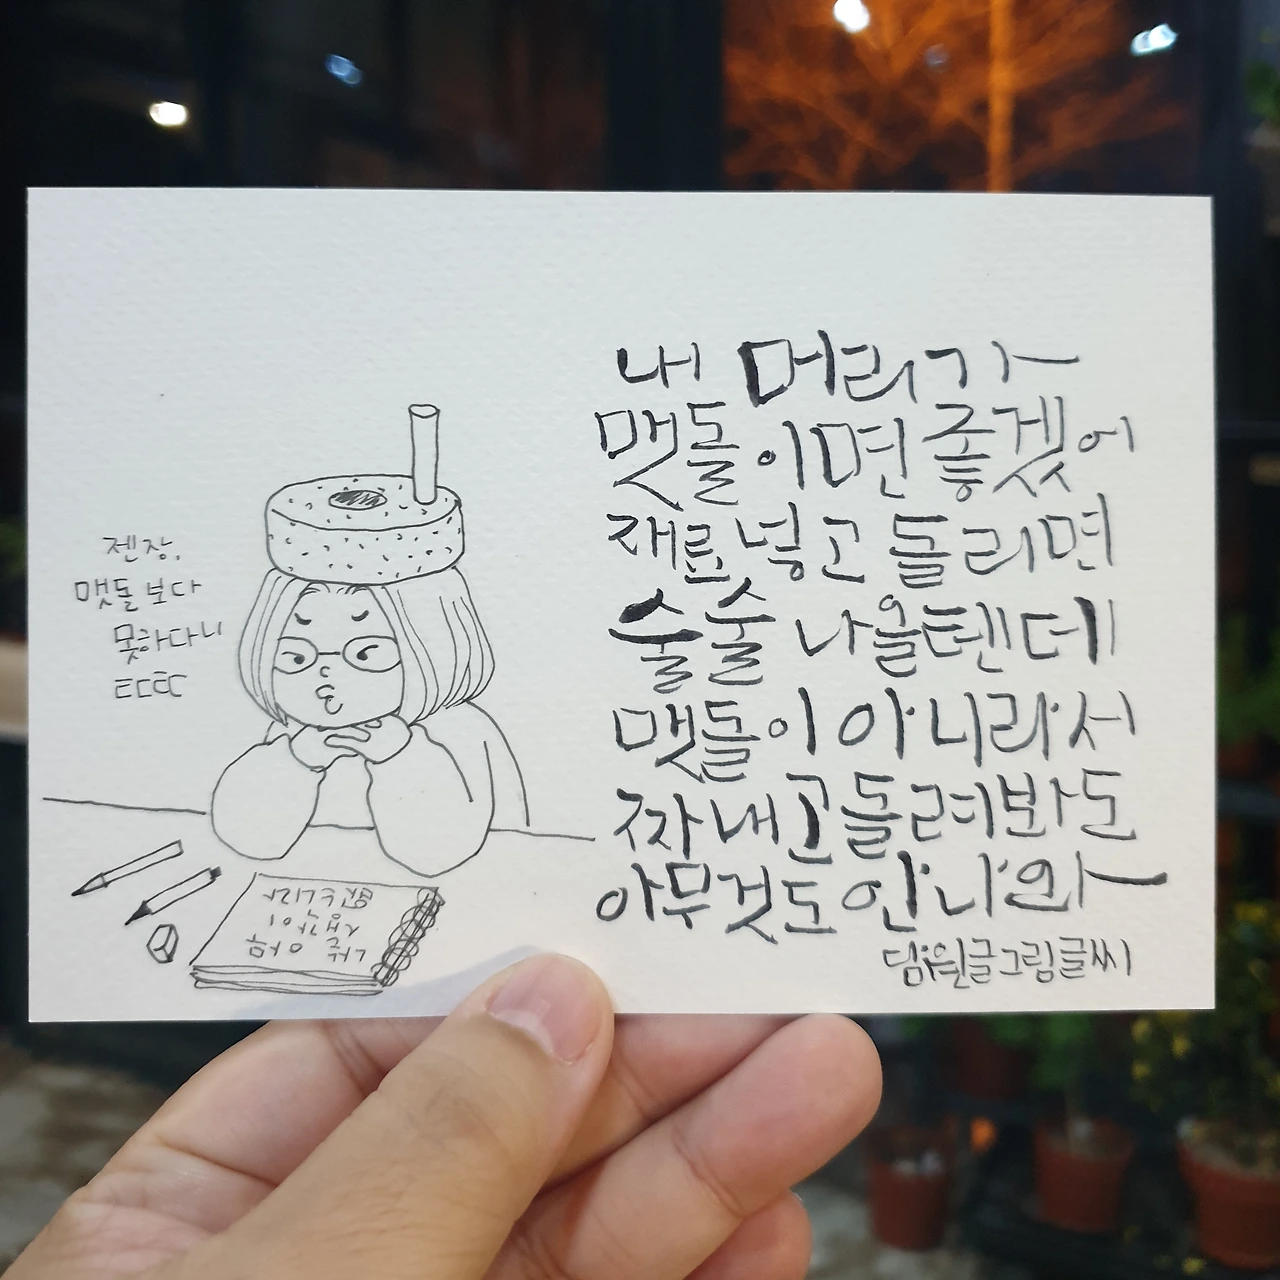 젠장,
맷돌 보다
못하다니
ㅌㄷㅌㄷ
나는 아무
생각이
내 머리가
맷돌이면 좋겠어
재료 넣고 돌리면
술술 나올텐데
맷돌이 아니라서
짜내고 돌려봐도
아무것도 안나와
글그림글씨